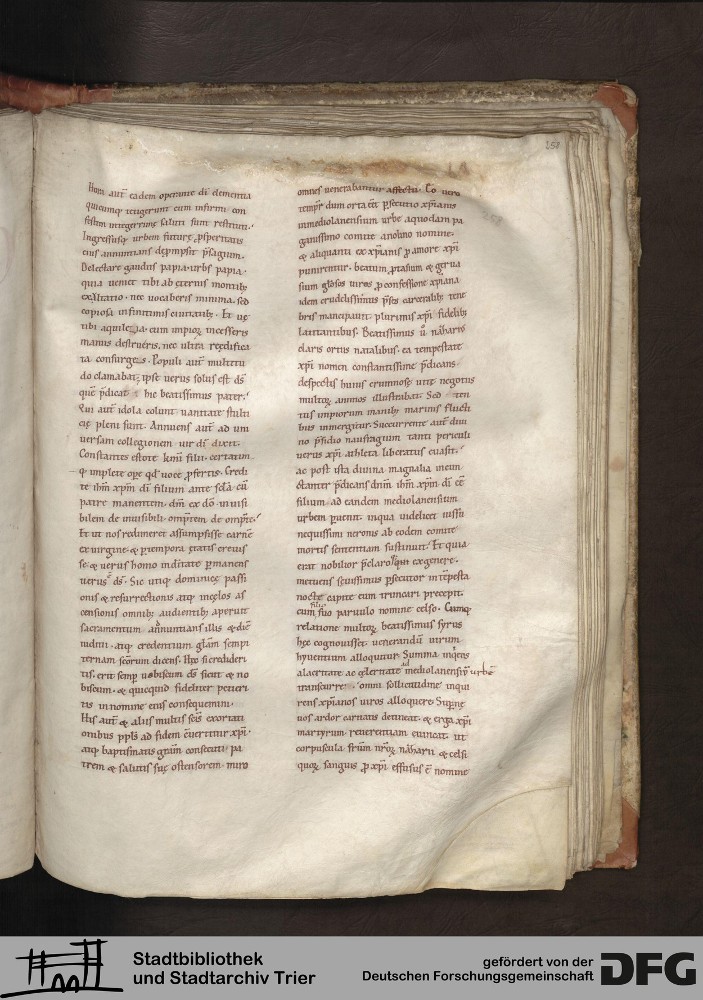 257
Hora aut̄ eadem operante dī clementia
quicumq; tetigerunt eum infirmi con
festim integerrimę saluti sunt restituti.
Ingressusq; urbem futurę ꝓsperitatis
eius annuntians depmpsit p̄sagium.
Delectare gaudiis papia. urbs papia.
quia ueniet tibi ab externis montib;
exaltatio. nec uocaberis minima. sed
copiosa infinitimis ciuitatib;. Et uę
tibi aquileia. cum impioꝝ incesseris
manus destrueris. nec ultra reędifica
ta consurges. Populi aut̄ multitu
do clamabat. ipse uerus solus est dś
quē p̄dicat hic beatissimus pater.
Qui aut̄ idola colunt uanitate stulti
cię pleni sunt. Annuens aut̄ ad uni
uersam collegionem uir dī dixit.
Constantes estote kmī filii. certatim
q; implete ope qd̄ uoce ꝓfertis. Credi
te ihm̄ xp̄m dī filium ante scl̄a cū
patre manentem. dm̄ ex dō. inuisi
bilem de inuisibili. omp̄tem de omp̄te.
Et ut nos redimeret assumpsisse carnē
ex uirgine. & ꝑ tempora ętatis creuis
se. & uerus homo inditate ꝑmanens
uerus ē dś. Sic utiq; dominicę passi
onis & resurrectionis atq; inçelos as
censionis omnib; audientib; aperuit
sacramentum. annuntians illis & diē
iuditii. atq; credentium glām sempi
ternam scōrum dicens. Hęc si credideri
tis. erit semꝑ uobiscum dś sicut & no
biscum. & quicquid fideliter petieri
tis in nomine eius consequemini.
His aut̄ & aliis multis scīs exortati
onibus ppls̄ ad fidem cūertitur xp̄i.
atq; baptismatis grām consecuti. pa
trem & salutis suę ostensorem. miro
omnes uenerabantur affectu. Eo uero
tempr̄ dum orta eēt ꝑsecutio xp̄ianis
inmediolanensium urbe aquodam pa
ganissimo comite anolino nomine.
& aliquanti ex xp̄ianis ꝓ amore xp̄i
punirentur. beatum ꝓtasium & gerua
sium glōsos uiros ꝓ confessione xp̄iana
idem crudelissimus p̄ses carceralib; tene
bris mancipauit plurimis xp̄i fidelib;
latitantibus. Beatissimus ū naharius
claris ortus natalibus. ea tempestate
xp̄i nomen constantissime p̄dicans.
despectis huius erumnosę uitę negotiis
multoꝝ animos illustrabat. Sed
tus impiorum manib; marinis flucti
bus inmergitur. Succurrente aut̄ diui
no p̄sidio naufragium tanti periculi
uerus xp̄i athleta liberatus euasit.
ac post ista diuina magnalia incun
ctanter p̄dicans dnm̄ ihm̄ xp̄m dī eē
filium. ad eandem mediolanensium
urbem ꝑuenit. inqua uidelicet iussu
nequissimi neronis ab eodem comite
mortis sententiam sustinuit. Et quia
erat nobilior p̄claroqꝫ ex genere.
metuens sęuissimus ꝑsecutor intēpesta
nocte capite eum truncari precepit.
cum filio suo paruulo nomine celso. Cumq;
relatione multoꝝ beatissimus syrus
hęc cognouisset. uenerandū uirum
hyuentium alloquitur. Summa inq̄ens
alacritate ac celeritate ad mediolanensiū urbē
transcurre. omni sollicitudine inqui
rens xp̄ianos uiros alloquere. Suꝑne
uos ardor caritatis detineat. & erga xp̄i
martyrum reuerentiam euincat. ut
corpuscula frūm nr̄oꝝ naharii & celsi
quoꝝ sanguis ꝓ xp̄i effusus ē nomine
Stadtbibliothek
und Stadtarchiv Trier
gefördert von der
Deutschen Forschungsgemeinschaft
DFG